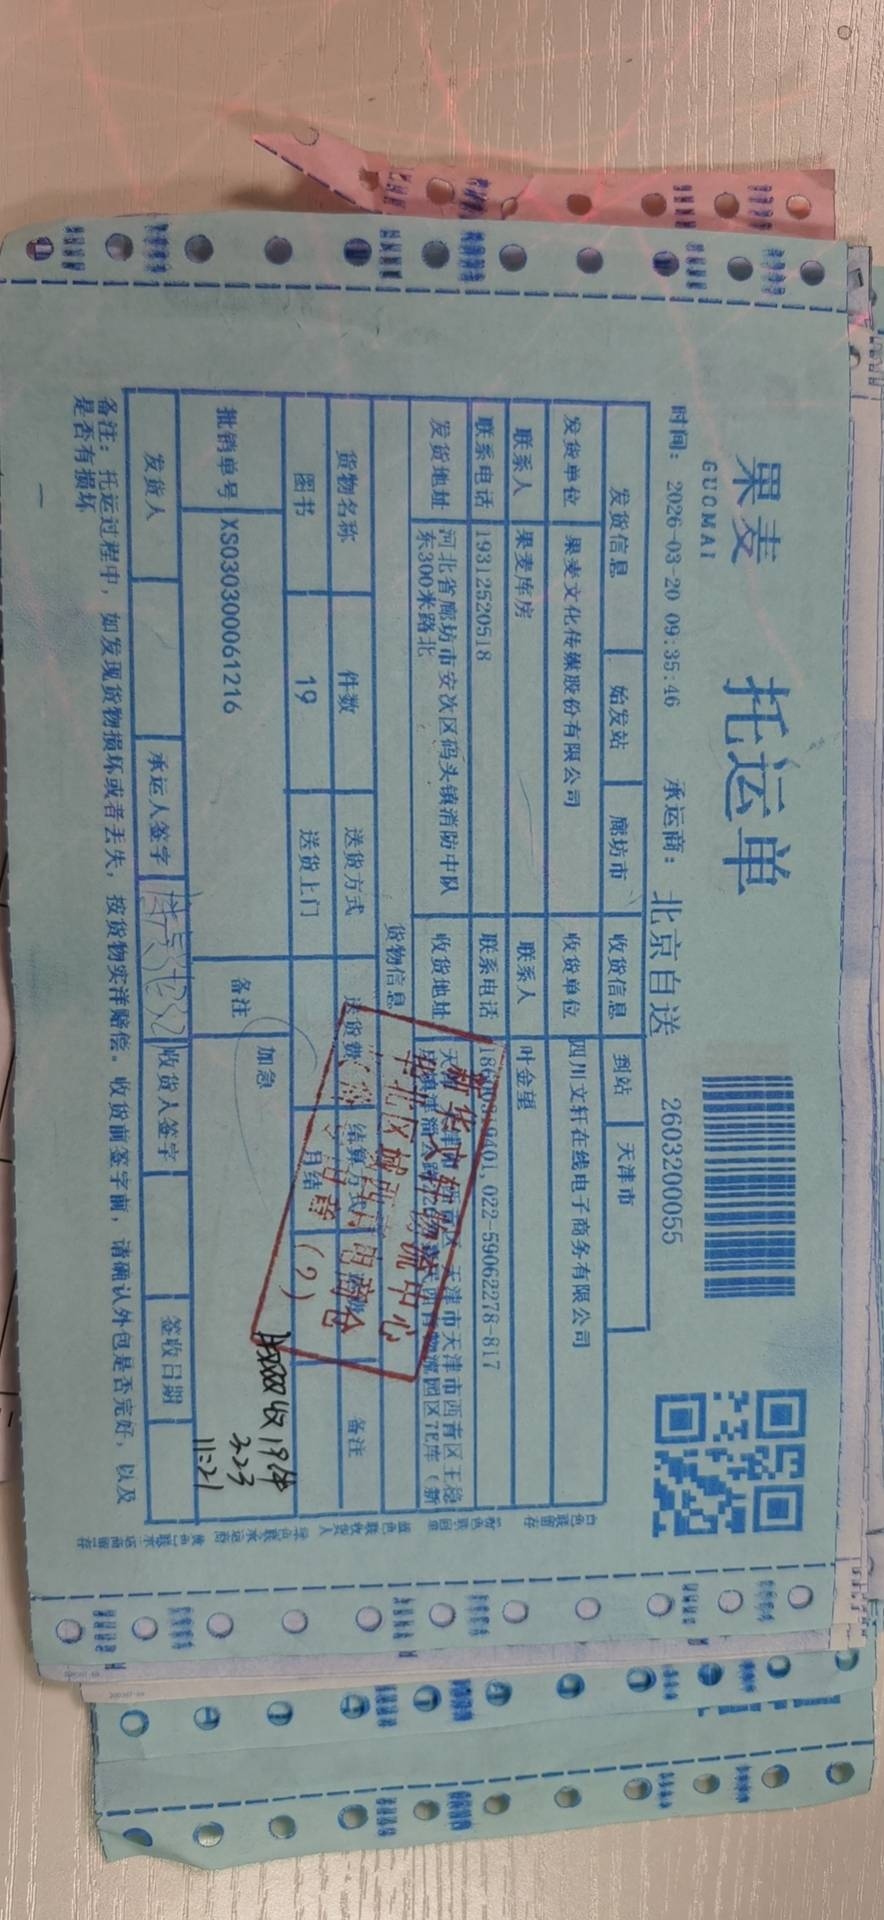 果麦
GUOMAI
托运单
时间: 2026-03-20 09:35:46 承运商: 北京自送 2603200055
发货信息 始发站 廊坊市 收货信息 到站 天津市
发货单位 果麦文化传媒股份有限公司 收货单位 四川文轩在线电子商务有限公司
联系人 果麦库房 联系人 叶金望
联系电话 19312520518 联系电话 022-59062278-817
发货地址 河北省廊坊市安次区码头镇消防中队东300米路北 收货地址 天津市天津市西青区王稳
货物信息
货物名称 件数 送货方式 送货费 结算方式 备注
图书 19 送货上门 月结
批销单号 XS030300061216 备注 加急
发货人 承运人签字 收货人签字 签收日期
备注: 托运过程中, 如发现货物损坏或者丢失, 按货物实洋赔偿。收货前签字前, 请确认外包是否完好, 以及
是否有损坏
新华文轩物流中心
(2)
收19件
3.23
11:21